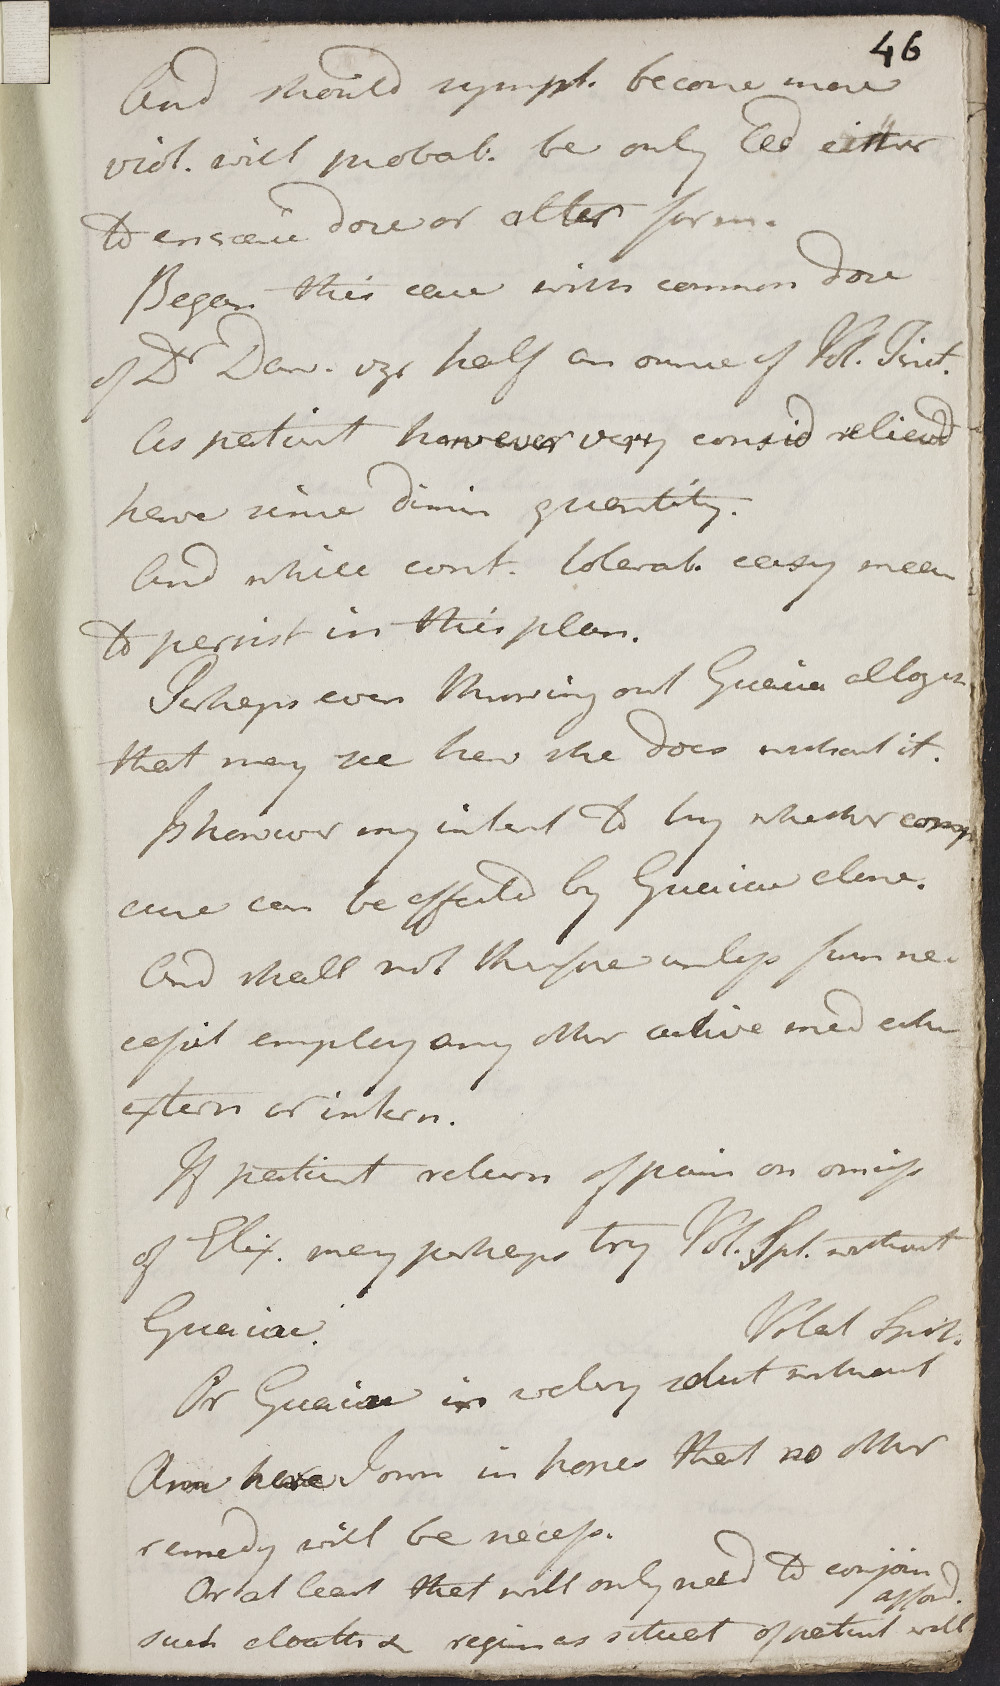 46
And should sympt. become more
viol. will probab. be only Led either
to encrease dose or alter form.
Began this case with common dose
of Dr Daw. vz. half an ounce of Vol. Tinct.
As patient however very consid relievd
have since dimin quantity.
And while cont. tolerab. easy mean
to persist in this plan.
Perhaps even throwing out Guaiac altoger
that may see how she does without it.
Is however my intent to try whether comp
cure can be effected by Guaiac alone.
And shall not therefore unless from ne-
cessit employ any other active med eithe
extern or intern.
If patient return of pain on omiss
of Elix. may perhaps try Vol. Spt. without
Guaiac.
Volat Spirit.
Or Guaiac in watery solut without
Am here I own in hopes that no other
remedy will be necess.
Or at least that will only need to conjoin
afford.
such cloaths & regim as situat of patient will